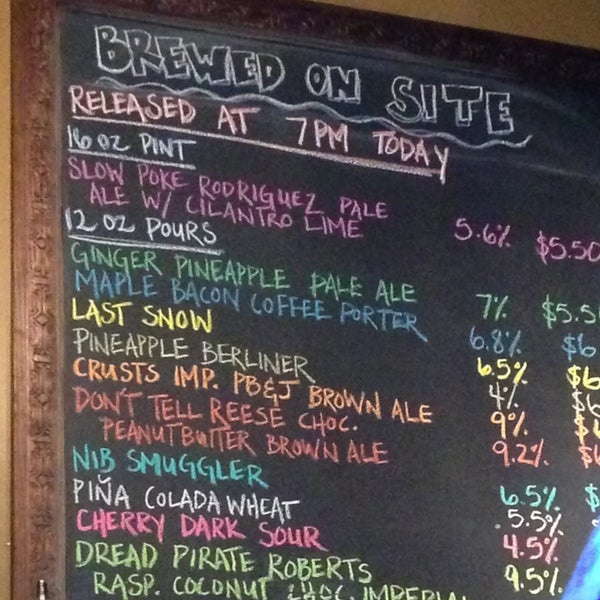 BREWED ON SITE
RELEASED AT 7PM TODAY
16 OZ PINT
SLOW POKE RODRIGUEZ PALE
ALE W/ CILANTRO LIME 5.6% $5.50
12 OZ POURS
GINGER PINEAPPLE PALE ALE 7% $5.5
MAPLE BACON COFFEE PORTER 6.8% $6
LAST SNOW 6.5% $6
PINEAPPLE BERLINER 4% $6
CRUSTS IMP. PB&J BROWN ALE 9% $6
DON'T TELL REESE CHOC.
PEANUTBUTTER BROWN ALE 9.2% $6
NIB SMUGGLER 6.5% $
PIÑA COLADA WHEAT 5.5%
CHERRY DARK SOUR 4.5%
DREAD PIRATE ROBERTS 9.5%
RASP. COCONUT CHOC. IMPERIAL